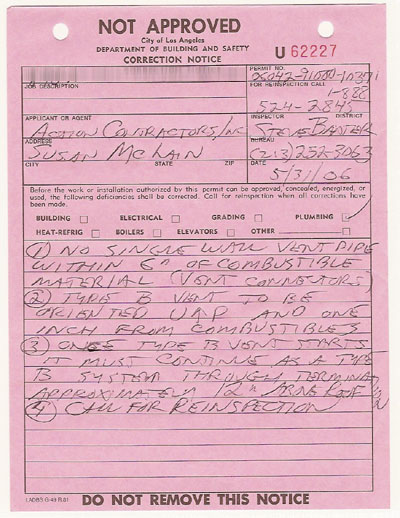 NOT APPROVED
City of Los Angeles
DEPARTMENT OF BUILDING AND SAFETY
CORRECTION NOTICE
U 62227
JOB DESCRIPTION
PERMIT NO.
FOR REINSPECTION CALL
1-888
524-2845
APPLICANT OR AGENT
ACTION CONTRACTORS/INC
INSPECTOR DISTRICT
STEVE BAXTER
ADDRESS
SUSAN MCLAIN
BUREAU
(213)252-3063
CITY STATE ZIP
DATE
5/31/06
Before the work or installation authorized by this permit can be approved, concealed, energized, or
used, the following deficiencies shall be corrected. Call for reinspection when all corrections have
been made.
BUILDING ELECTRICAL GRADING PLUMBING
HEAT-REFRIG BOILERS ELEVATORS OTHER
1 NO SINGLE WALL VENT PIPE
WITHIN 6" OF COMBUSTIBLE
MATERIAL (VENT CONNECTORS)
2 TYPE B VENT TO BE
ORIENTED UAP AND ONE
INCH FROM COMBUSTIBLES
3 ONCE TYPE B VENT STARTS
IT MUST CONTINUE AS A TYPE
B SYSTEM THROUGH
APPROXIMATELY 12" ROOF
4 CALL FOR REINSPECTION
DO NOT REMOVE THIS NOTICE